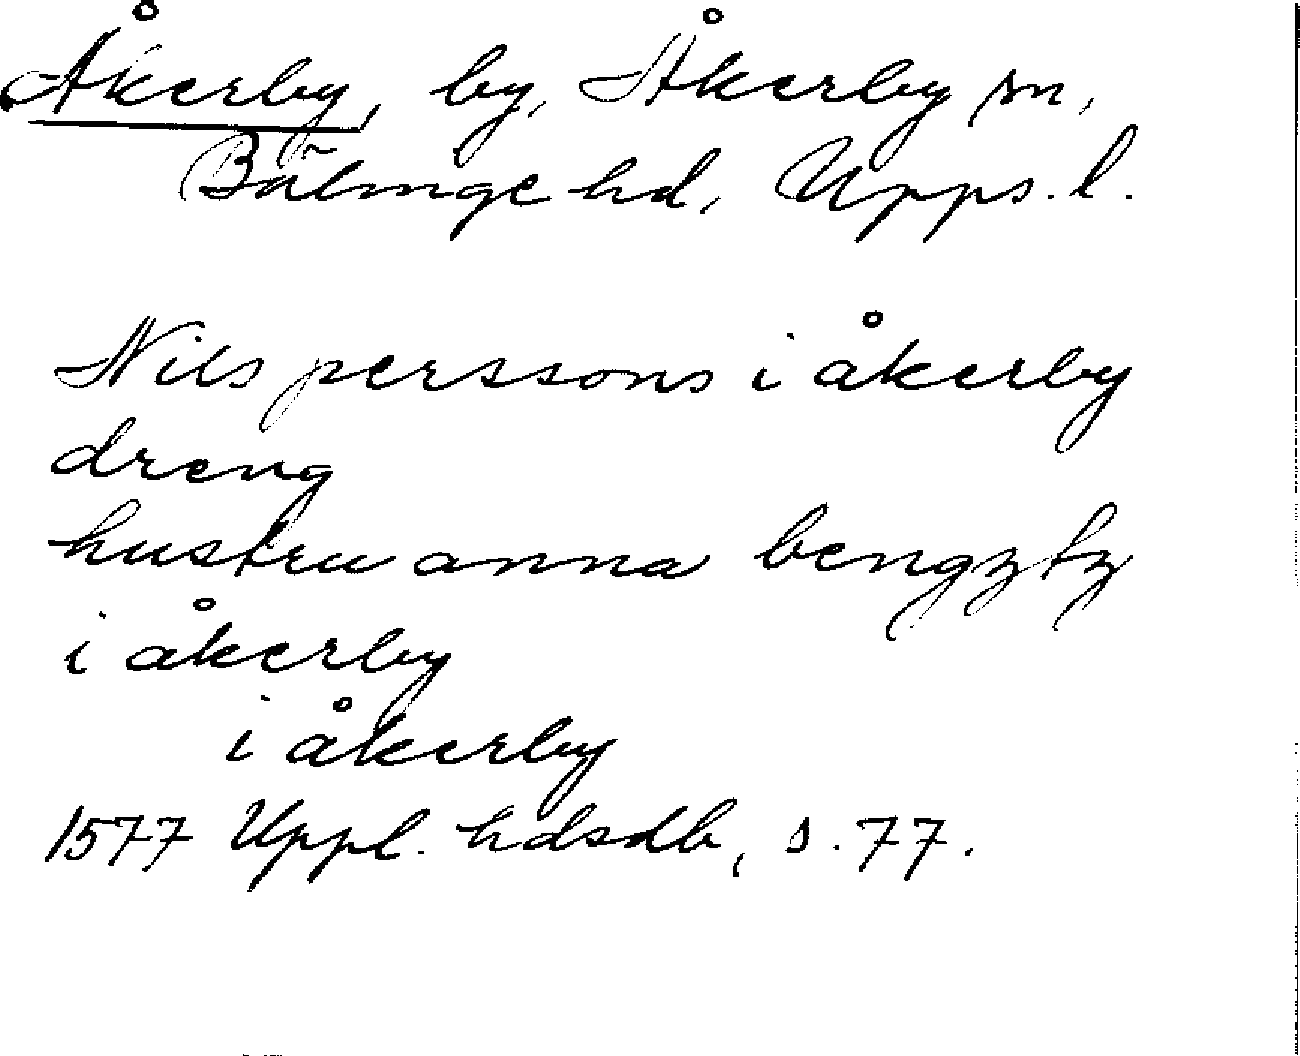 Åkerby, by, Åkerby sn,
Bälinge hd, Upps. l.
Nils perssons i åkerby
dreng
hustru anna bengztz
i åkerby
i åkerby
1577 Uppl. hdsdb, s. 77.